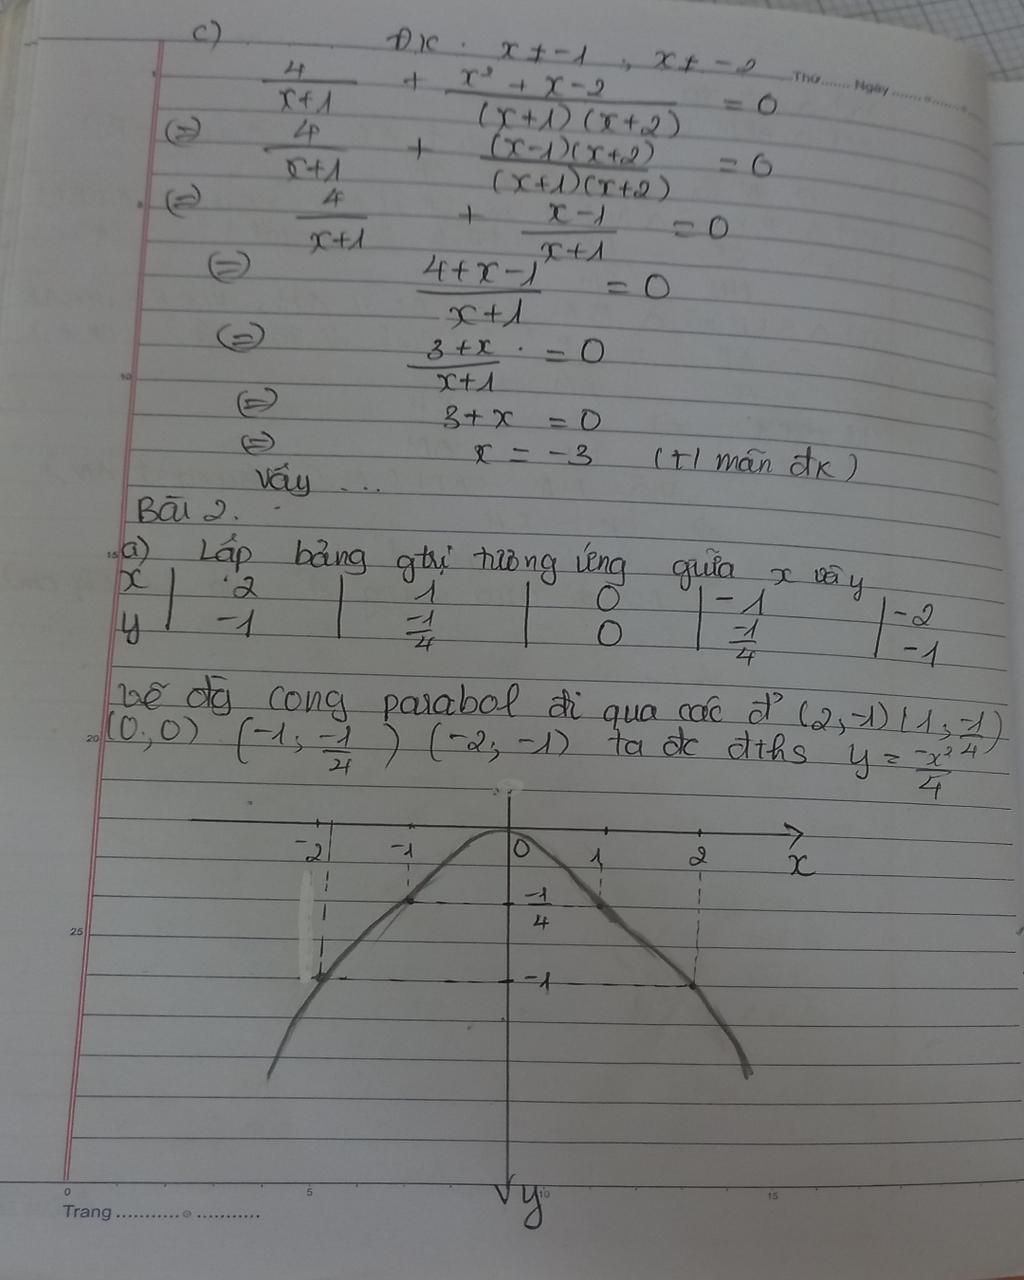 c) ĐK: x ≠ -1, x ≠ -2
Thứ....... Ngày .................
4/(x+1) + (x² + x - 2)/((x+1)(x+2)) = 0
(=) 4/(x+1) + ((x-1)(x+2))/((x+1)(x+2)) = 0
(=) 4/(x+1) + (x-1)/(x+1) = 0
(=) (4+x-1)/(x+1) = 0
(=) (3+x)/(x+1) = 0
(=) 3+x = 0
(=) x = -3 (t/ mãn đk)
Vậy ...
Bài 2.
a) Lập bảng gtrị tương ứng giữa x và y
x | 2 | 1 | 0 | -1 | -2
y | -1 | -1/4 | 0 | -1/4 | -1
vẽ đg cong parabol đi qua các đ' (2,-1) (1,-1/4)
(0,0) (-1, -1/4) (-2,-1) ta đc đths y = -x²/4
-2 -1 0 1 2 x
-1/4
-1
y
10
15
20
25
0 5 10 15
Trang ......................